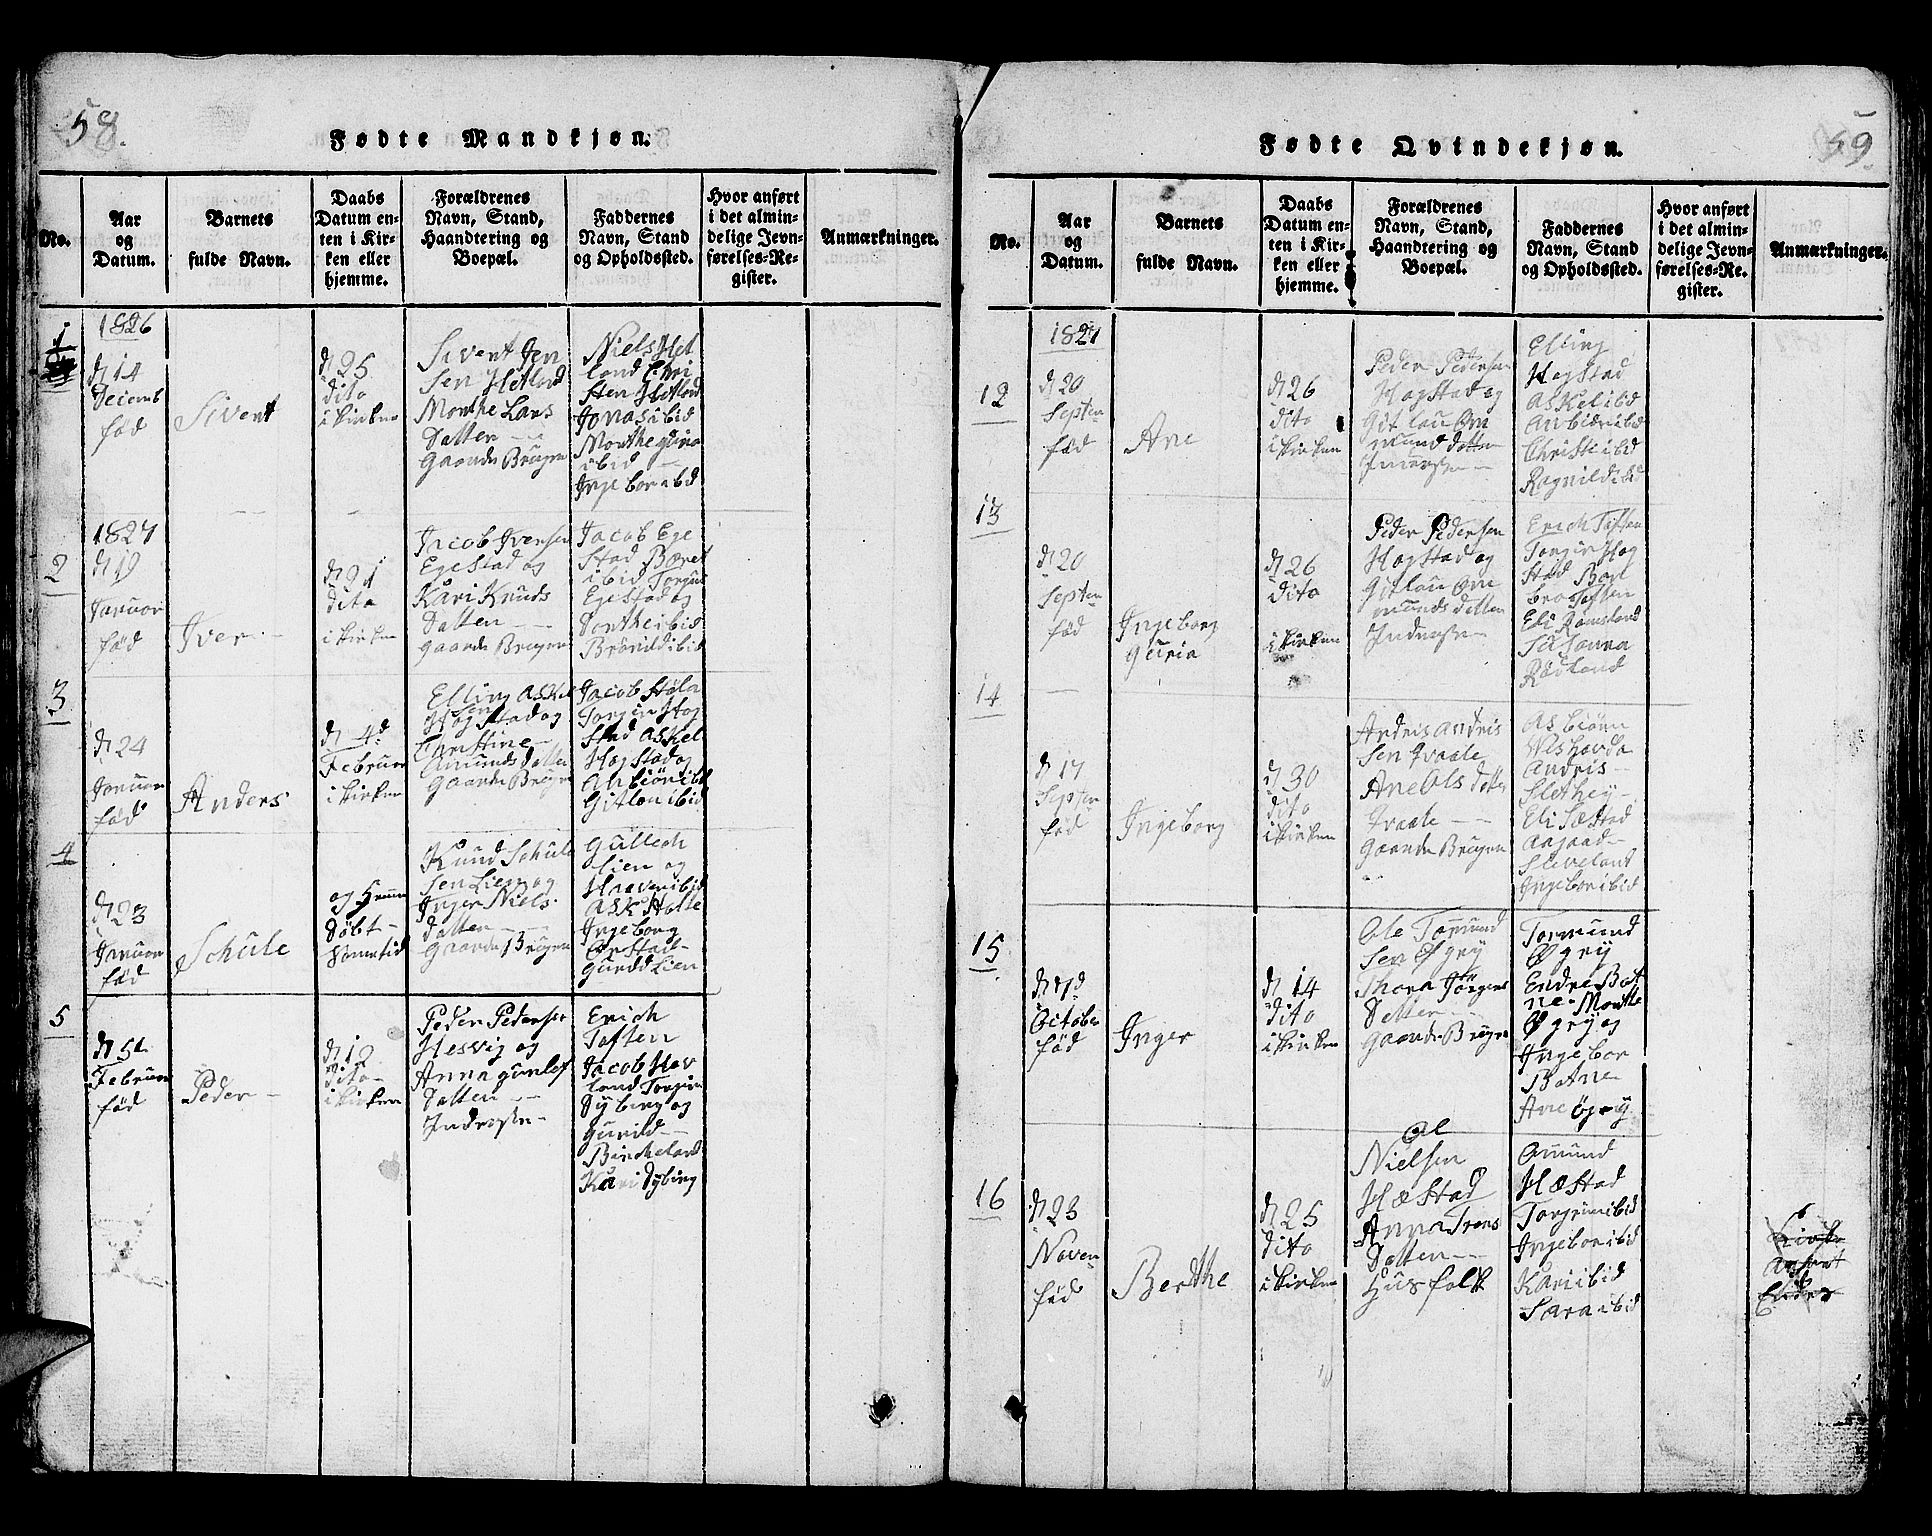 58.
Fødte Mandkjøn.
No.
Aar
og
Datum.
Barnets
fulde Navn.
Daabs
Datum en-
ten i Kir-
ken eller
hjemme.
Forældrenes
Navn, Stand,
Haandtering og
Boepæl.
Faddernes
Navn, Stand
og Opholdssted.
Hvor anført
i det almin-
delige Jevn-
førelses-Re-
gister.
Anmærkninger.
1
1826
d 14
fød
Sivent
d 25
dito
i kirken
Sivent Jen
sen Hetland
Monthe Lars
Datten
Gaards Brugen
Niels Het
land
sten Hetland
Jonas ibid
Monthe
ibid
Ingebor ibid
2
1827
d 19
Januar
fød
Iver
d 21
dito
i kirken
Jacob Iversen
Egestad og
Kari Knuds
Datten
Gaards Brugen
Jacob Ege
stad
ibid Torgin
Egestad og
Dorthe ibid
Brønild ibid
3
d 24
Januar
fød
Anders
d 4d
Februar
i kirken
Elling Askel
sen
Høgstad og
Christine
Amunds Datten
Gaards Brugen
Jacob
Torgin Høg
stad Askel
Høgstad og
Anbiør ibid
Gitlou ibid
4
d 23
Januar
fød
Schule
Døbt
Knud Schule
sen Lien og
Inger Niels
Datten
Gaards Brugen
Gullech
Lien og
ibid
Ingeborg
Ørstad
Lien
5
d 5t
Februar
fød
Peder
d 12
dito
i kirken
Peder Pedersen
Hesvig og
Anna Gunlef
Datten
Inderster
Erich
Toften
Jacob Hov
land Torgin
Dybing og
Gunild
Bincheland
Kari Dybing
59
Fødte Qvindekjøn.
No.
Aar
og
Datum.
Barnets
fulde Navn.
Daabs
Datum en-
ten i Kir-
ken eller
hjemme.
Forældrenes
Navn, Stand,
Haandtering og
Boepæl.
Faddernes
Navn, Stand
og Opholdssted.
Hvor anført
i det almin-
delige Jevn-
førelses-Re-
gister.
Anmærkninger.
12
1827
d 20
Septen
fød
Ane
d 26
dito
i kirken
Peder Pedersen
Høgstad og
Gitlau Om
mund datten
Elling
Høgstad
Askel ibid
Anbiør ibid
Christi ibid
Ragnild ibid
13
d 20
Septen
fød
Ingeborg
Guria
d 26
dito
i kirken
Peder Pedersen
Høgstad og
Gitlau Om
munds datten
Inderster
Erich Toften
Torgin Høg
stad
Toften
Eli Ramsland
Susanna
Rødland
14
d 17
Septen
fød
Ingeborg
d 30
dito
i kirken
Andris Andris
sen Tvaale
Ane Ols datter
Tvaale
Gaards Brugen
Asbiørn
Andris
Slethey
Eli
Aasaad
Sleveland
Ingebor ibid
15
d 7d
October
fød
Inger
d 14
dito
i kirken
Ole Tormund
sen Øgry
Thora Torgers
Datter
Gaards Brugen
Tormund
Øgry
Endre Bot
ne Monthe
Øgry og
Ingebor
Botne
Ane Øgry
16
d 23
Noven
fød
Berthe
d 25
dito
i kirken
Ol
Nielsen
Hæstad
Anna Trons
Datten
Husfolk
Amund
Hæstad
Torgrim ibid
Ingebor ibid
Kari ibid
Sara ibid